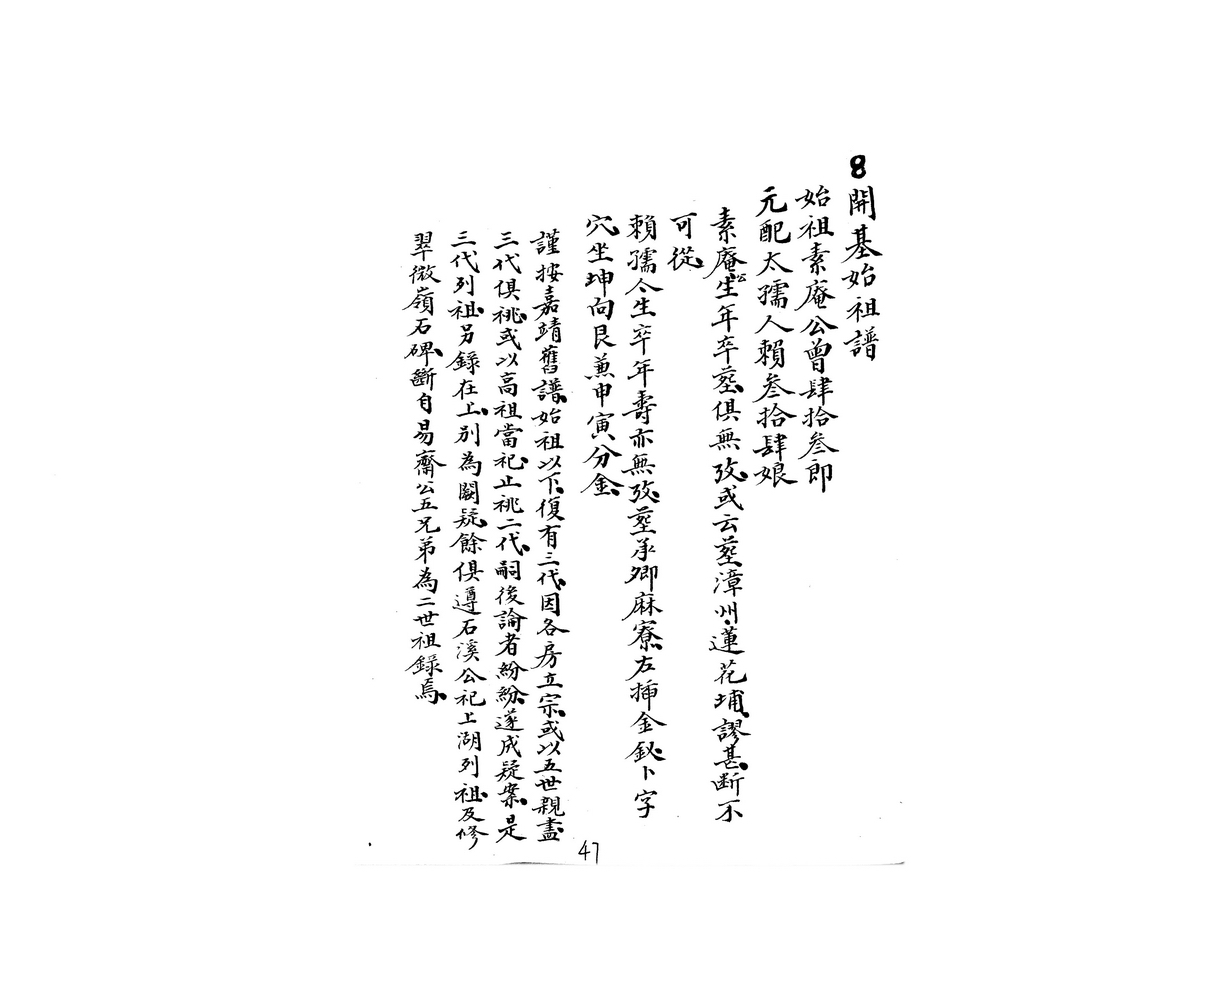 8開基始祖譜
始祖素庵公曾肆拾叁郎
元配太孺人賴叁拾肆娘
素庵公生年卒塟俱無攷或云塟漳州蓮花埔謬甚断不
可從
賴孺人生卒年壽亦無攷塟承卿麻寮左挿金釵卜字
穴坐坤向艮兼申寅分金
謹按嘉靖舊譜始祖以下復有三代因各房立宗或以五世親盡
三代俱祧或以高祖當祀止祧二代嗣後論者紛紛遂成疑案是
三代列祖另錄在上别為闕疑餘俱遵石溪公祀上湖列祖及修
翠微嶺石碑斷自易齋公五兄弟為二世祖錄焉
47